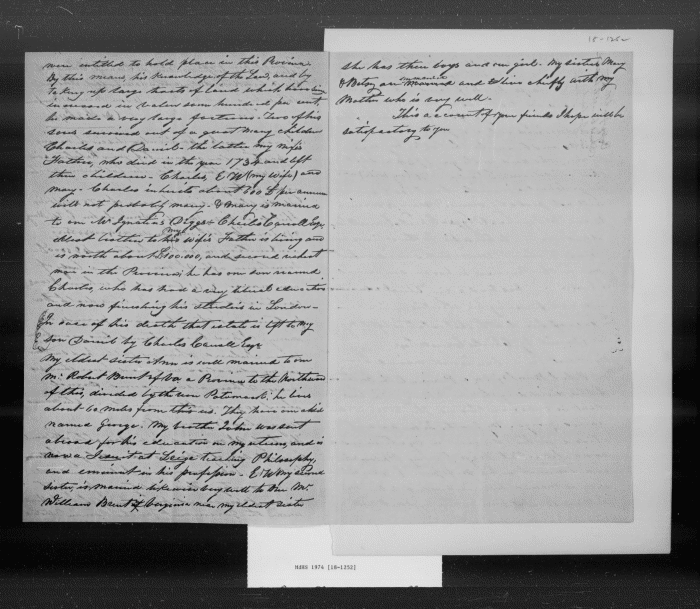 men entitled to hold place in this Province
By this means, his knowledge of the Law, and by
taking up large tracts of Land which have since
increased in value some hundred per cent,
he made a very large fortune. Two of his
sons survived out of a great many children
Charles and Daniel. the latter my wife's
Father, who died in the year 1734 and left
three children. Charles, E W (my wife) and
Mary. Charles inherits about 600 £ per annum
will not probably marry. & Mary is married
to one Mr Ignatius Digges Charles Carroll Esqr
eldest brother to my wife's Father is living and
is worth about £100.000, and second richest
man in the Province, he has one son named
Charles, who has had a very liberal education
and now finishing his studies in London-
In case of his death that estate is left to my
son Daniel by Charles Carroll Esqr
My eldest sister Ann is well married to one
Mr Robert Brent of Va a Province to the
of this, divided by the river Potomack; he lives
about 60 miles from this us. They have one child
named George. My brother John was sent
abroad for his education on my return, and is
now a Jesuit at Leige teaching Philosophy,
and eminent in his profession- E W my second
sister is married likewise very well to one Mr
William Brent of Virginia near my eldest sister
18-1252
she has three boys and one girl. My sisters Mary
& Betsy are unmarried and live chiefly with my
Mother who is very well.
This account of your friends I hope will be
satisfactory to you
NdRS 1976 [18-1252]